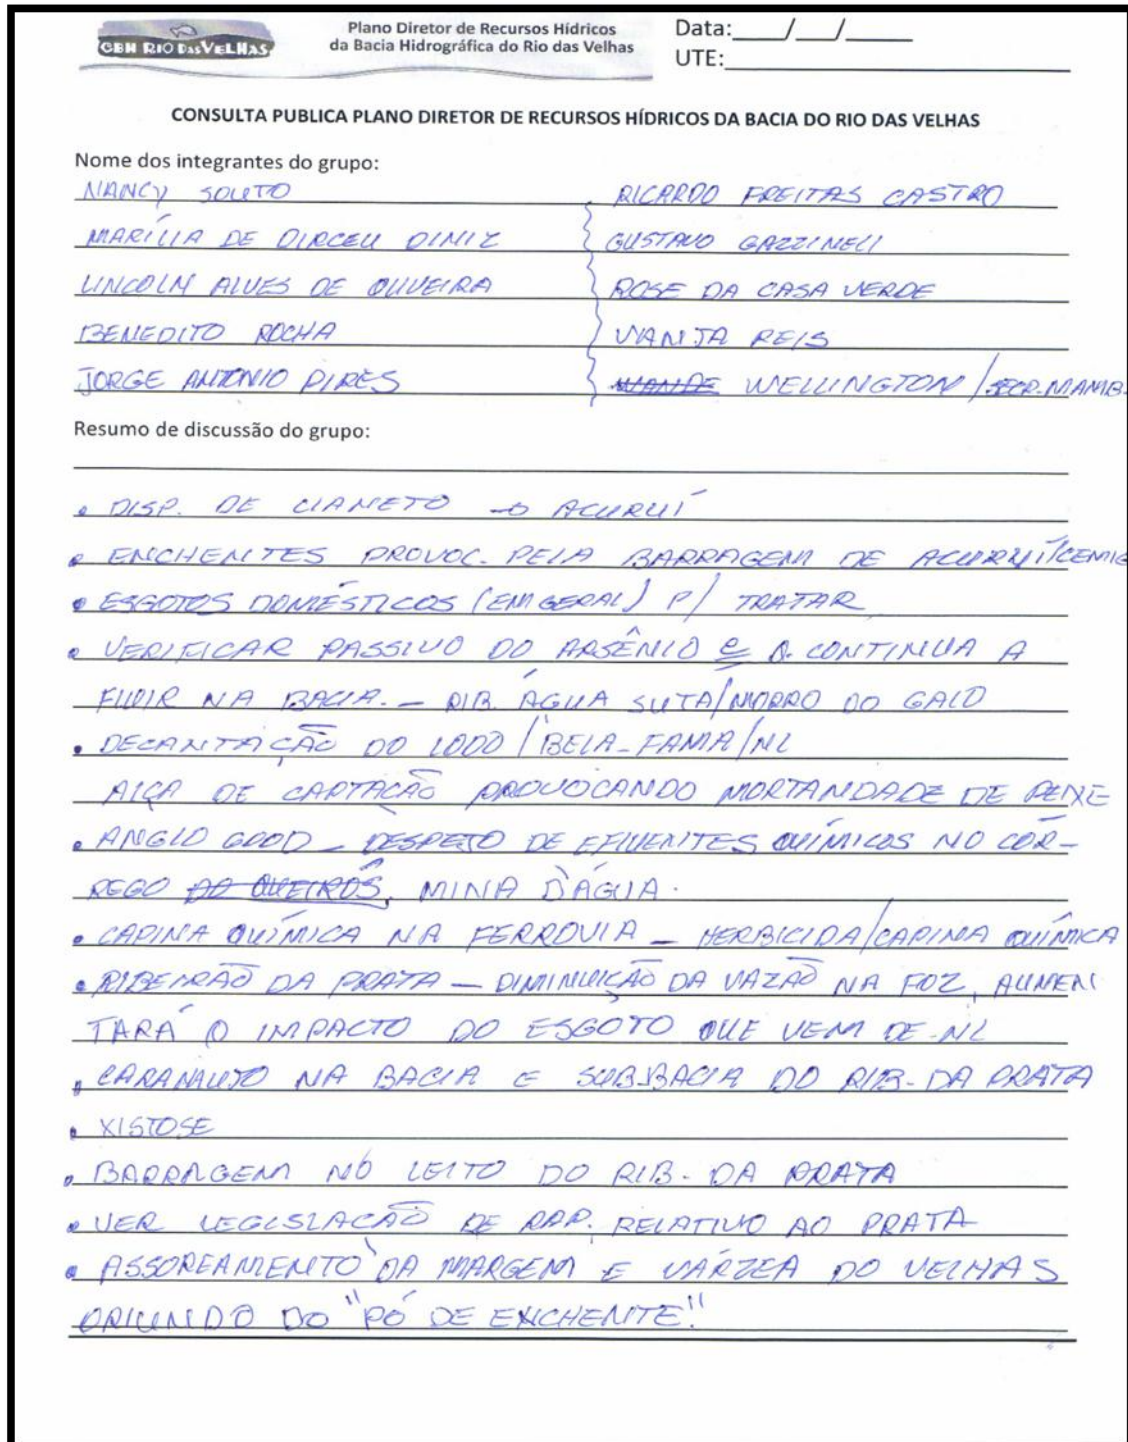 CBH RIO DAS VELHAS
Plano Diretor de Recursos Hídricos
da Bacia Hidrográfica do Rio das Velhas
Data:____/___/_____
UTE:
CONSULTA PUBLICA PLANO DIRETOR DE RECURSOS HÍDRICOS DA BACIA DO RIO DAS VELHAS
Nome dos integrantes do grupo:
NANCY SOUTO
MARÍLIA DE DIRCEU DINIZ
LINCOLN ALVES DE OLIVEIRA
BENEDITO ROCHA
JORGE ANTONIO PIRES
RICARDO FREITAS CASTRO
GUSTAVO GAZZINELI
ROSE DA CASA VERDE
VANJA REIS
WELLINGTON / SECR. MAMB.
Resumo de discussão do grupo:
• DISP. DE CIANETO → ACURUÍ
• ENCHENTES PROVOC. PELA BARRAGEM DE ACURUÍ/CEMIG
• ESGOTOS DOMÉSTICOS (EM GERAL) P/ TRATAR
• VERIFICAR PASSIVO DO ARSÊNIO e Q. CONTINUA A
FLUIR NA BACIA. - RIB. ÁGUA SUJA/MORRO DO GALO
• DECANTAÇÃO DO LODO / BELA-FAMA/NL
ALÇA DE CAPTAÇÃO PROVOCANDO MORTANDADE DE PEIXE
• ANGLO GOOD - DESPEJO DE EFLUENTES QUÍMICOS NO CÓR-
REGO DO QUEIRÓS, MINA D'ÁGUA.
• CAPINA QUÍMICA NA FERROVIA - HERBICIDA/CAPINA QUÍMICA
• RIBEIRÃO DA PRATA - DIMINUIÇÃO DA VAZÃO NA FOZ, AUMEN
TARÁ O IMPACTO DO ESGOTO QUE VEM DE NL
• CARAMUJO NA BACIA E SUB.BACIA DO RIB. DA PRATA
• XISTOSE
• BARRAGEM NO LEITO DO RIB. DA PRATA
• VER LEGISLAÇÃO DE RELATIVO AO PRATA
• ASSOREAMENTO DA MARGEM E VÁRZEA DO VELHAS
ORIUNDO DO "PÓ DE ENCHENTE."